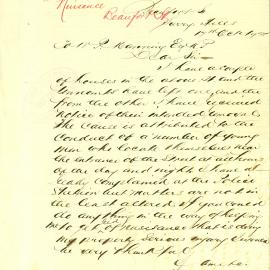 Nuisance
Beaufort St
Beaufort St
Surry Hills
17 Oct
To W. P. Manning Esq M P
Dear Sir
I have a couple
of houses in the above St and the
tenants have left one and
from the other I have received
notice of their intended removal
The cause is attributed to the
conduct of a number of young
men who locate themselves near
the entrance of the Street at all hours
of the day and night I have al
ready complained at the Police
Station but matters are not in
the least altered if you could
do anything in the way of helping
me to get of nuisance that is doing
my property serious injury I would
be very thankful